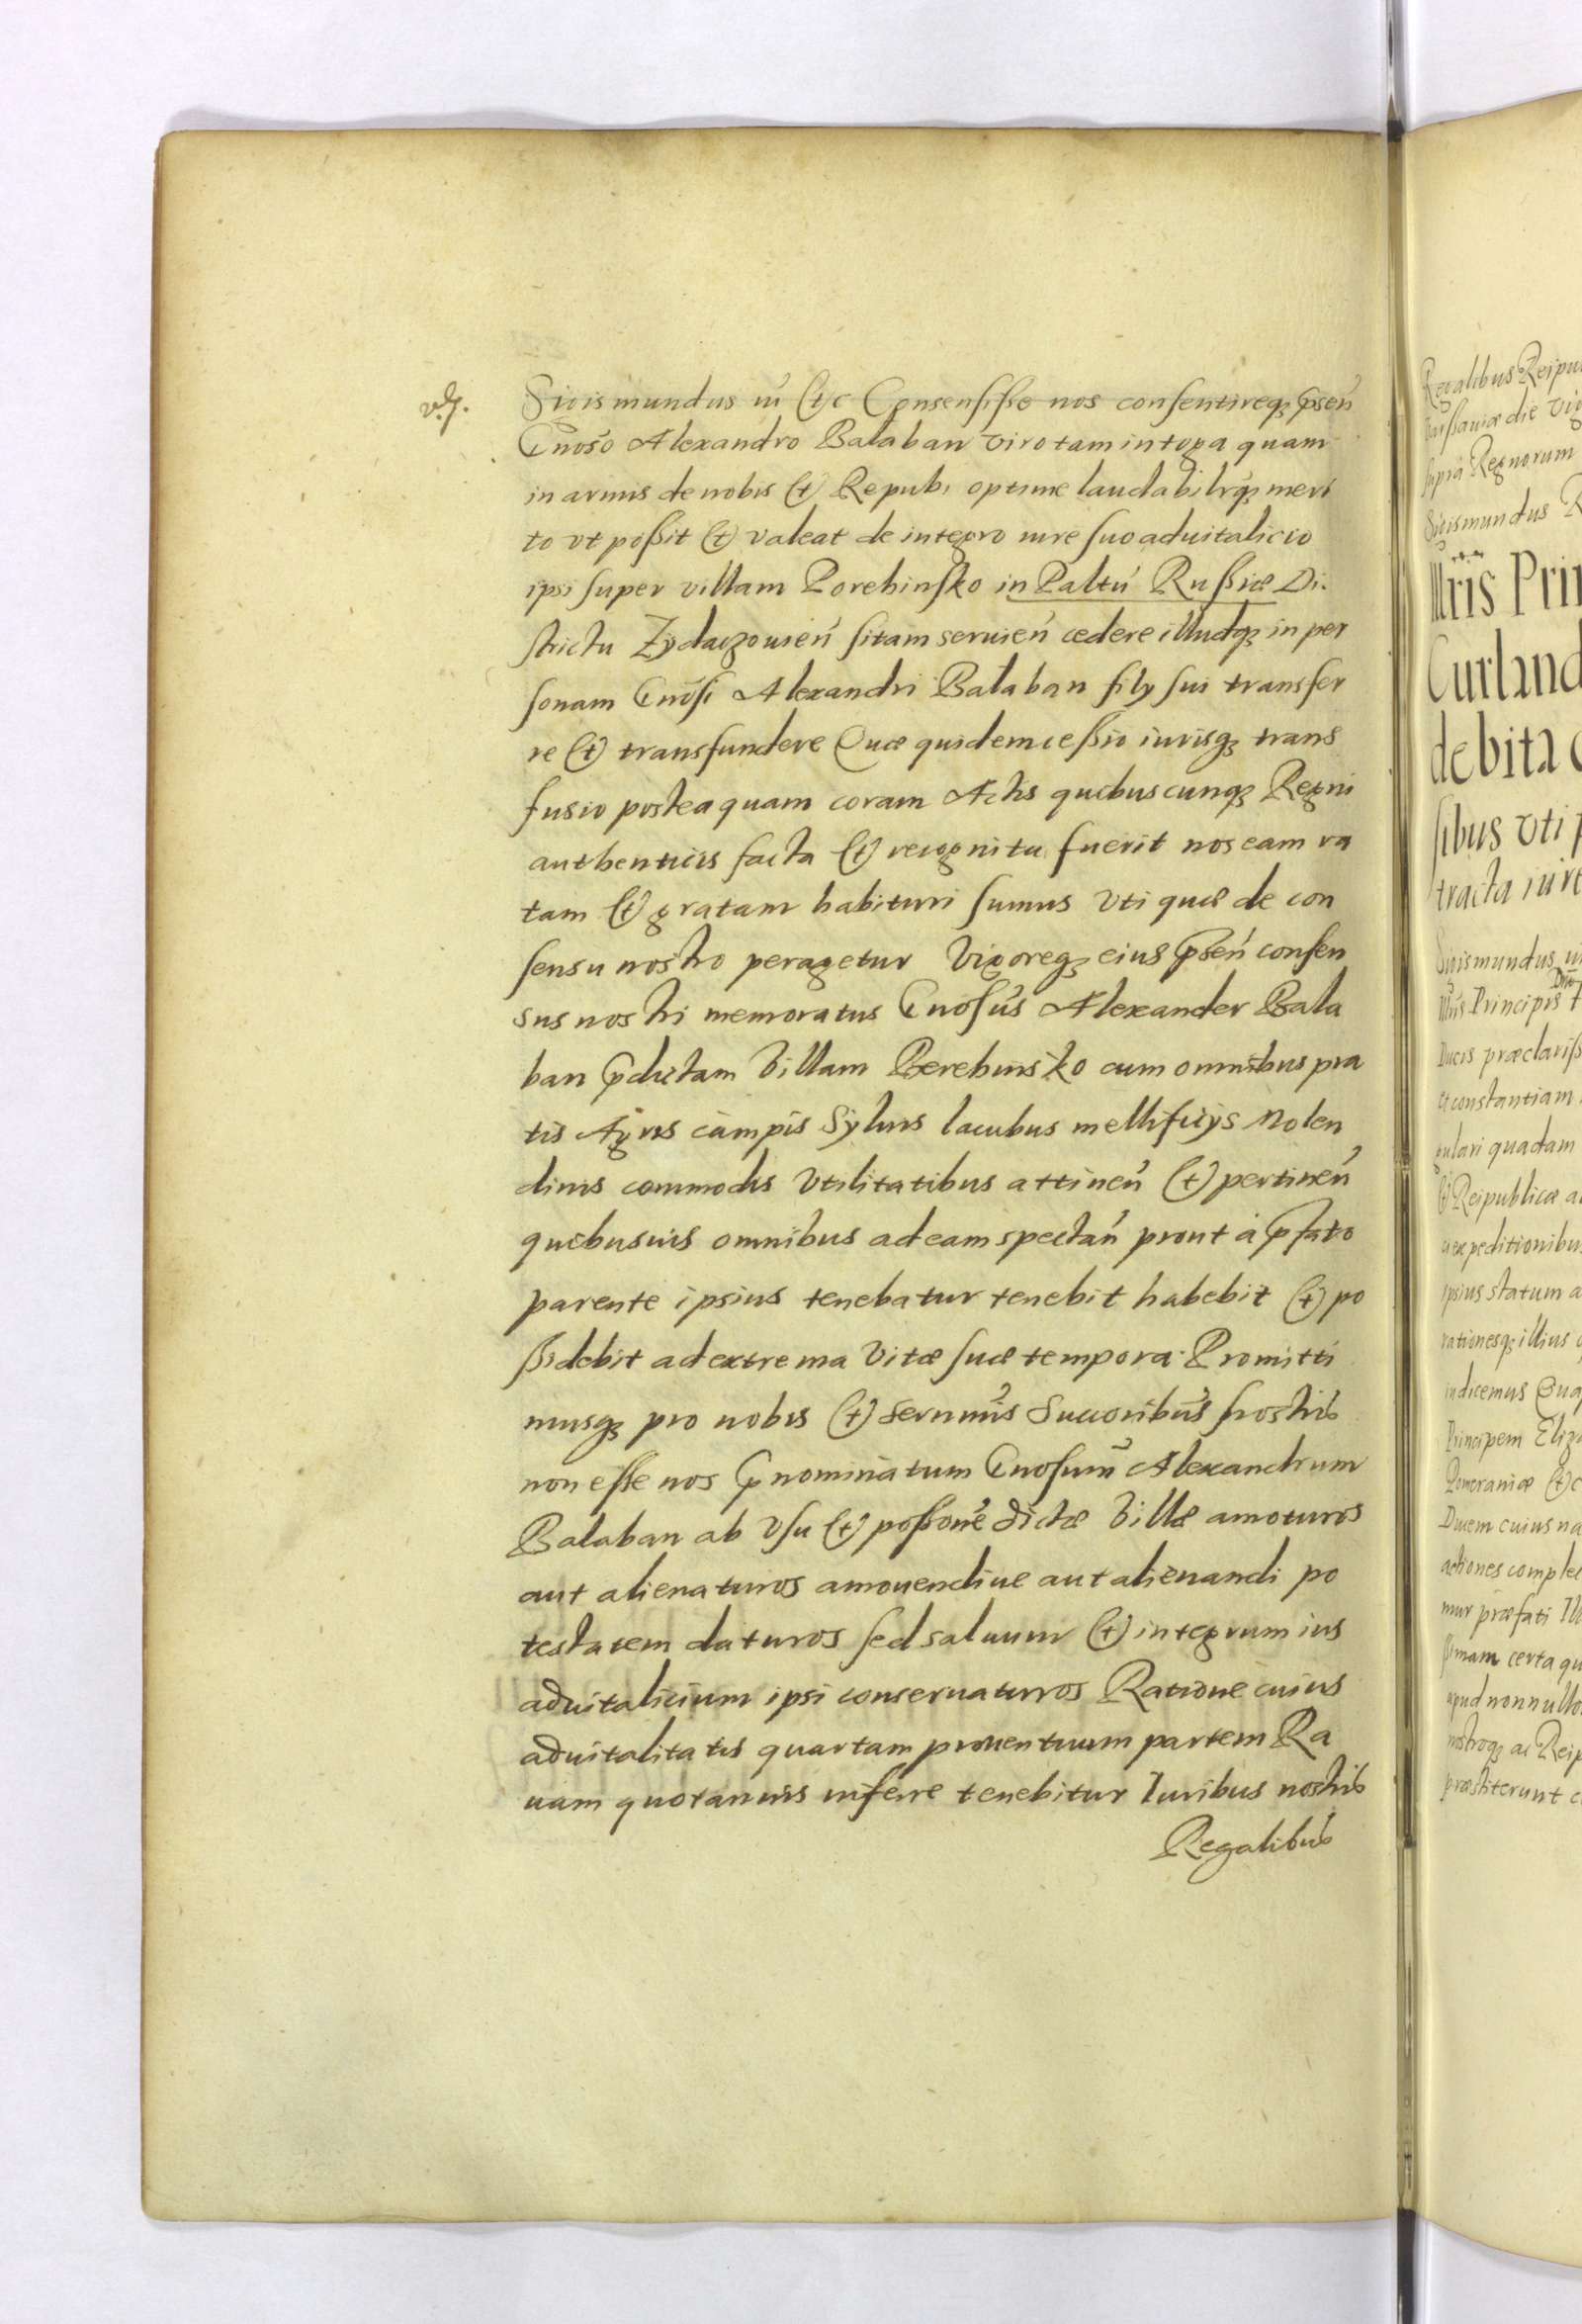 Sigismundus iii (et)c Consensisse nos consentireq3 pñsen
Gñoso Alexandro Balaban viro tam in toga quam
in armis de nobis (et) Repub. optime laudabilrq3 meri
to vt poßit (et) valeat de integro iure suo aduitalicio
ipsi super villam Porehinsko in Paltu Rußiæ Di.
strictu Zydaczouien sitam seruien cedere illudq3 in per
sonam Gñosi Alexandri Balaban filÿ sui transfer
re (et) transfundere Quæ quidem ceßio iurisq3 trans
fusio posteaquam coram Actis quibuscunq3 Regni
authenticis facta (et) recognita fuerit nos eam ra
tam (et) gratam habituri sumus vti quæ de con
sensu nostro peragetur Vigoreq3 eius pñsen consen
sus nostri memoratus Gñosus Alexander Bala
ban pdictam Villam Perehinsko cum omnibus pra
tis Agris campis Syluis lacubus mellificÿs Molen
dinis commodis Vtilitatibus attinen (et) pertinen
quibusuis omnibus ad eam spectan prout à pfato
parente ipsius tenebatur tenebit habebit (et) po
ßidebit ad extrema Vitæ suæ tempora Promitti
musq3 pro nobis (et) Sernmis Succoribus nostris
non esse nos pnominatum Gnosum Alexandrum
Balaban ab Vsu (et) poßone dictæ Villæ amoturos
aut alienaturos amouendiue aut alienandi po
testatem daturos sed saluum (et) integrum ius
aduitalicium ipsi conseruaturos Ratione cuius
aduitalitatis quartam prouentuum partem Ra
uam quotannis inferre tenebitur Iuribus nostris
Regalibus
Regalibus Reipu
die Vig
supra Regnorum
Sigismundus R
Illris Prin
Curland
debita
sibus vti
tracta iure
Sigismundus iii
Illus Principis
Ducis præclariß
et constantiam
gulari quadam
(et) Reipublicæ
expeditionibus
ipsius statum a
rationesq3 illius
indicemus
Principem Eliza
Pomeraniæ (et)c
Ducem cuius na
actiones complec
mur præfati Ill
certa qu
apud nonnullos
nostroq3 ac Reip
præstiterunt